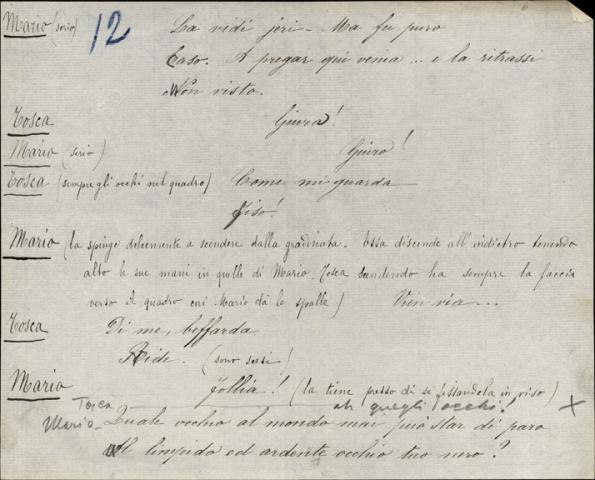 Mario (serio) 12 La vidi jeri - Ma fu puro
Caso. A pregar qui venia... e la ritrassi
Non visto.
Tosca Giura!
Mario (serio) Giuro!
Tosca (sempre gli occhi nel quadro) Come mi guarda
Fiso!
Mario (la spinge dolcemente a scendere dalla gradinata. Essa discende all'indietro tenendo
alto le sue mani in quelle di Mario. Tosca scendendo ha sempre la faccia
verso il quadro cui Mario dà le spalle) Vien via...
Tosca Di me, beffarda
Ride. (sono scesi)
Mario Follia! (la tiene presso di sè fissandola in viso)
Tosca ah quegli occhi! x
Mario - Quale occhio al mondo mai può star di paro
All limpido ed ardente occhio tuo nero?